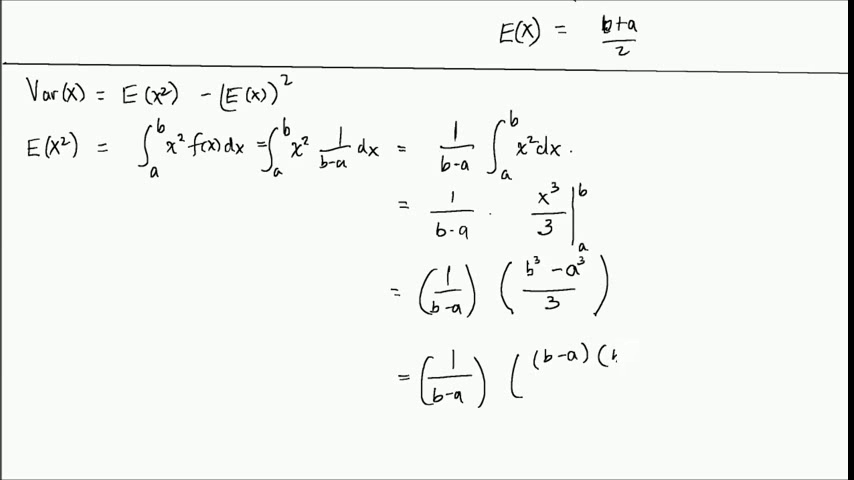 E(X) = b+a/2
Var(X) = E(X²) - (E(X))²
E(X²) = ∫_a^b x² f(x)dx = ∫_a^b x² 1/b-a dx = 1/b-a ∫_a^b x² dx.
= 1/b-a · x³/3 |_a^b
= (1/b-a) (b³-a³/3)
= (1/b-a) ( (b-a) (